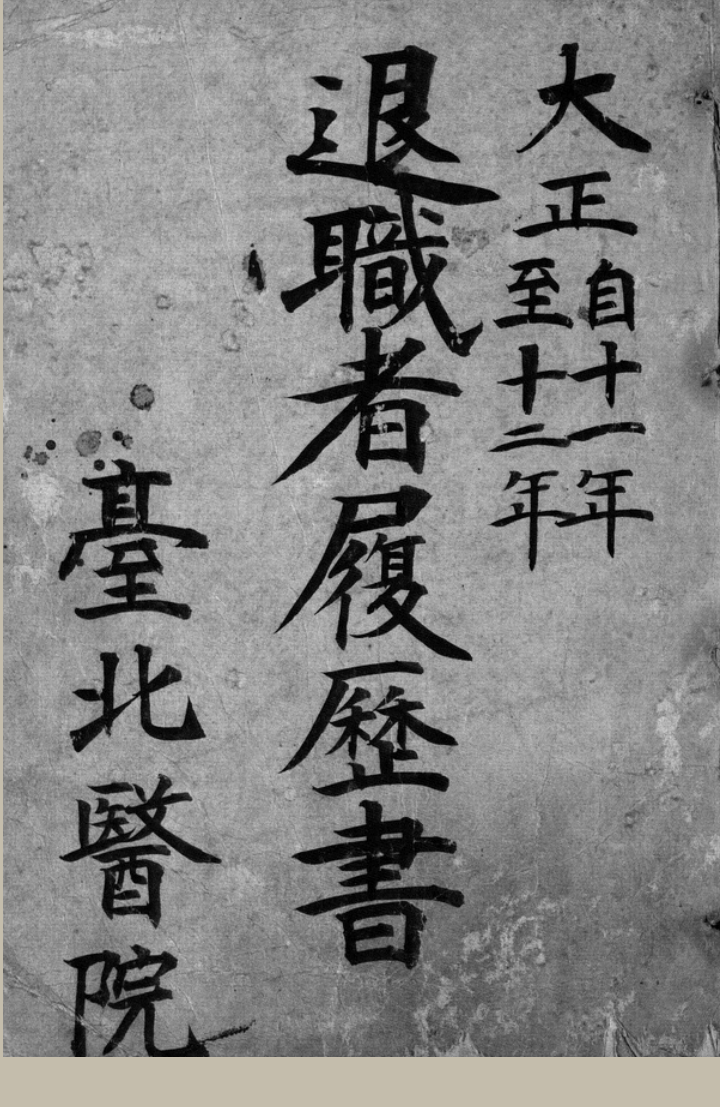 大正
自十一年
至十二年
退職者履歷書
臺北醫院